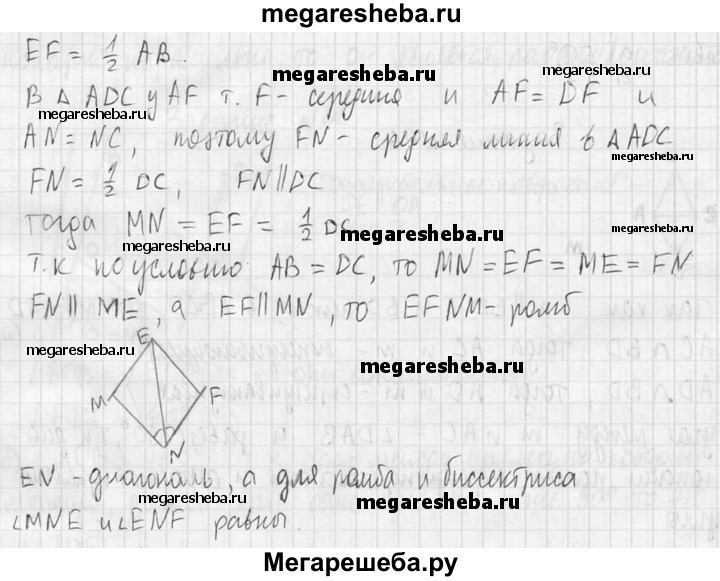 megaresheba.ru
EF = 1/2 AB.
megaresheba.ru
megaresheba.ru
В Δ ADC у AF т. F - середина и AF = DF и
AN = NC, поэтому FN - средняя линия в Δ ADC
megaresheba.ru
FN = 1/2 DC, FN || DC
megaresheba.ru
тогда MN = EF = 1/2 DC
megaresheba.ru
megaresheba.ru
Т.к по условию AB = DC, то MN = EF = ME = FN
FN || ME, а EF || MN, то EFNM - ромб
megaresheba.ru
megaresheba.ru
E
M
F
N
EN - диагональ, а для ромба и биссектриса
megaresheba.ru
megaresheba.ru
∠MNE и ∠ENF равны.
Мегарешеба.ру